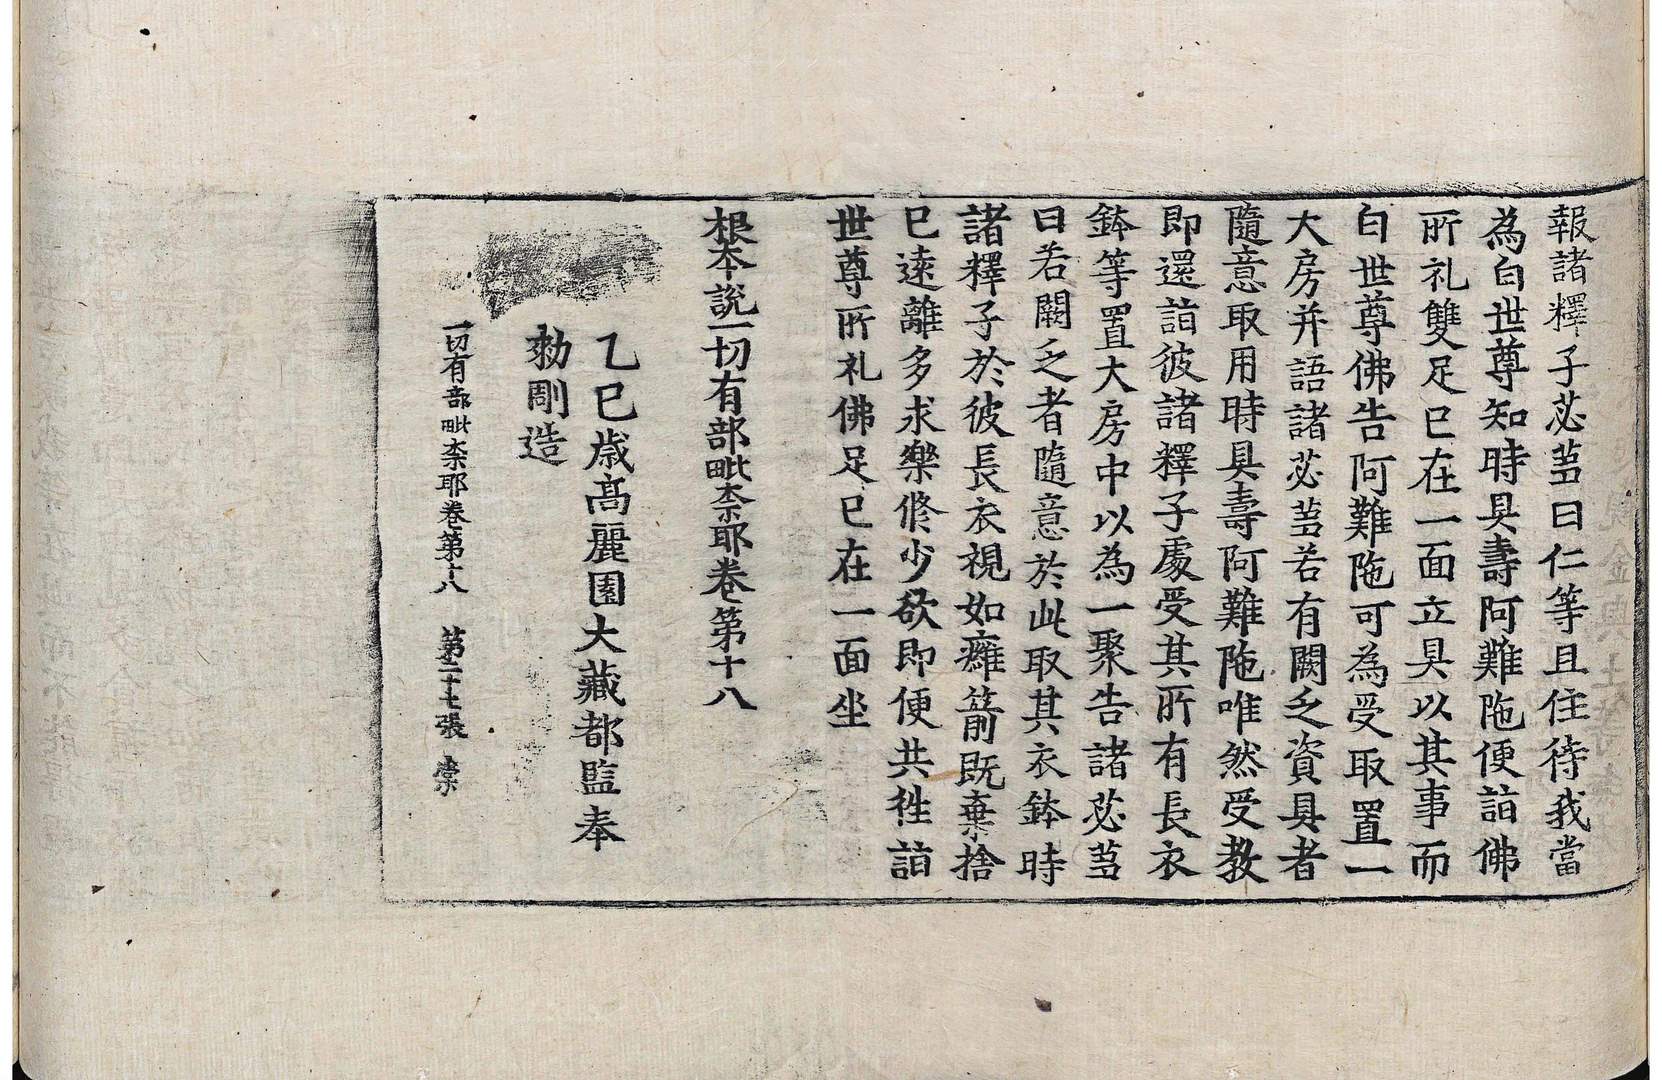 報諸釋子苾蒭曰仁等且住待我當
為白世尊知時具壽阿難陁便詣佛
所礼雙足已在一面立具以其事而
白世尊佛告阿難陁可為受取置一
大房并語諸苾蒭若有闕乏資具者
隨意取用時具壽阿難陁唯然受教
即還詣彼諸釋子處受其所有長衣
鉢等置大房中以為一聚告諸苾蒭
曰若闕乏者隨意於此取其衣鉢時
諸釋子於彼長衣視如癰箭既棄捨
已遠離多求樂修少欲即便共往詣
世尊所礼佛足已在一面坐
根本說一切有部毗奈耶卷第十八
乙巳歲高麗國大藏都監奉
勑彫造
一切有部毗奈耶卷第十八 第二十七張 棠